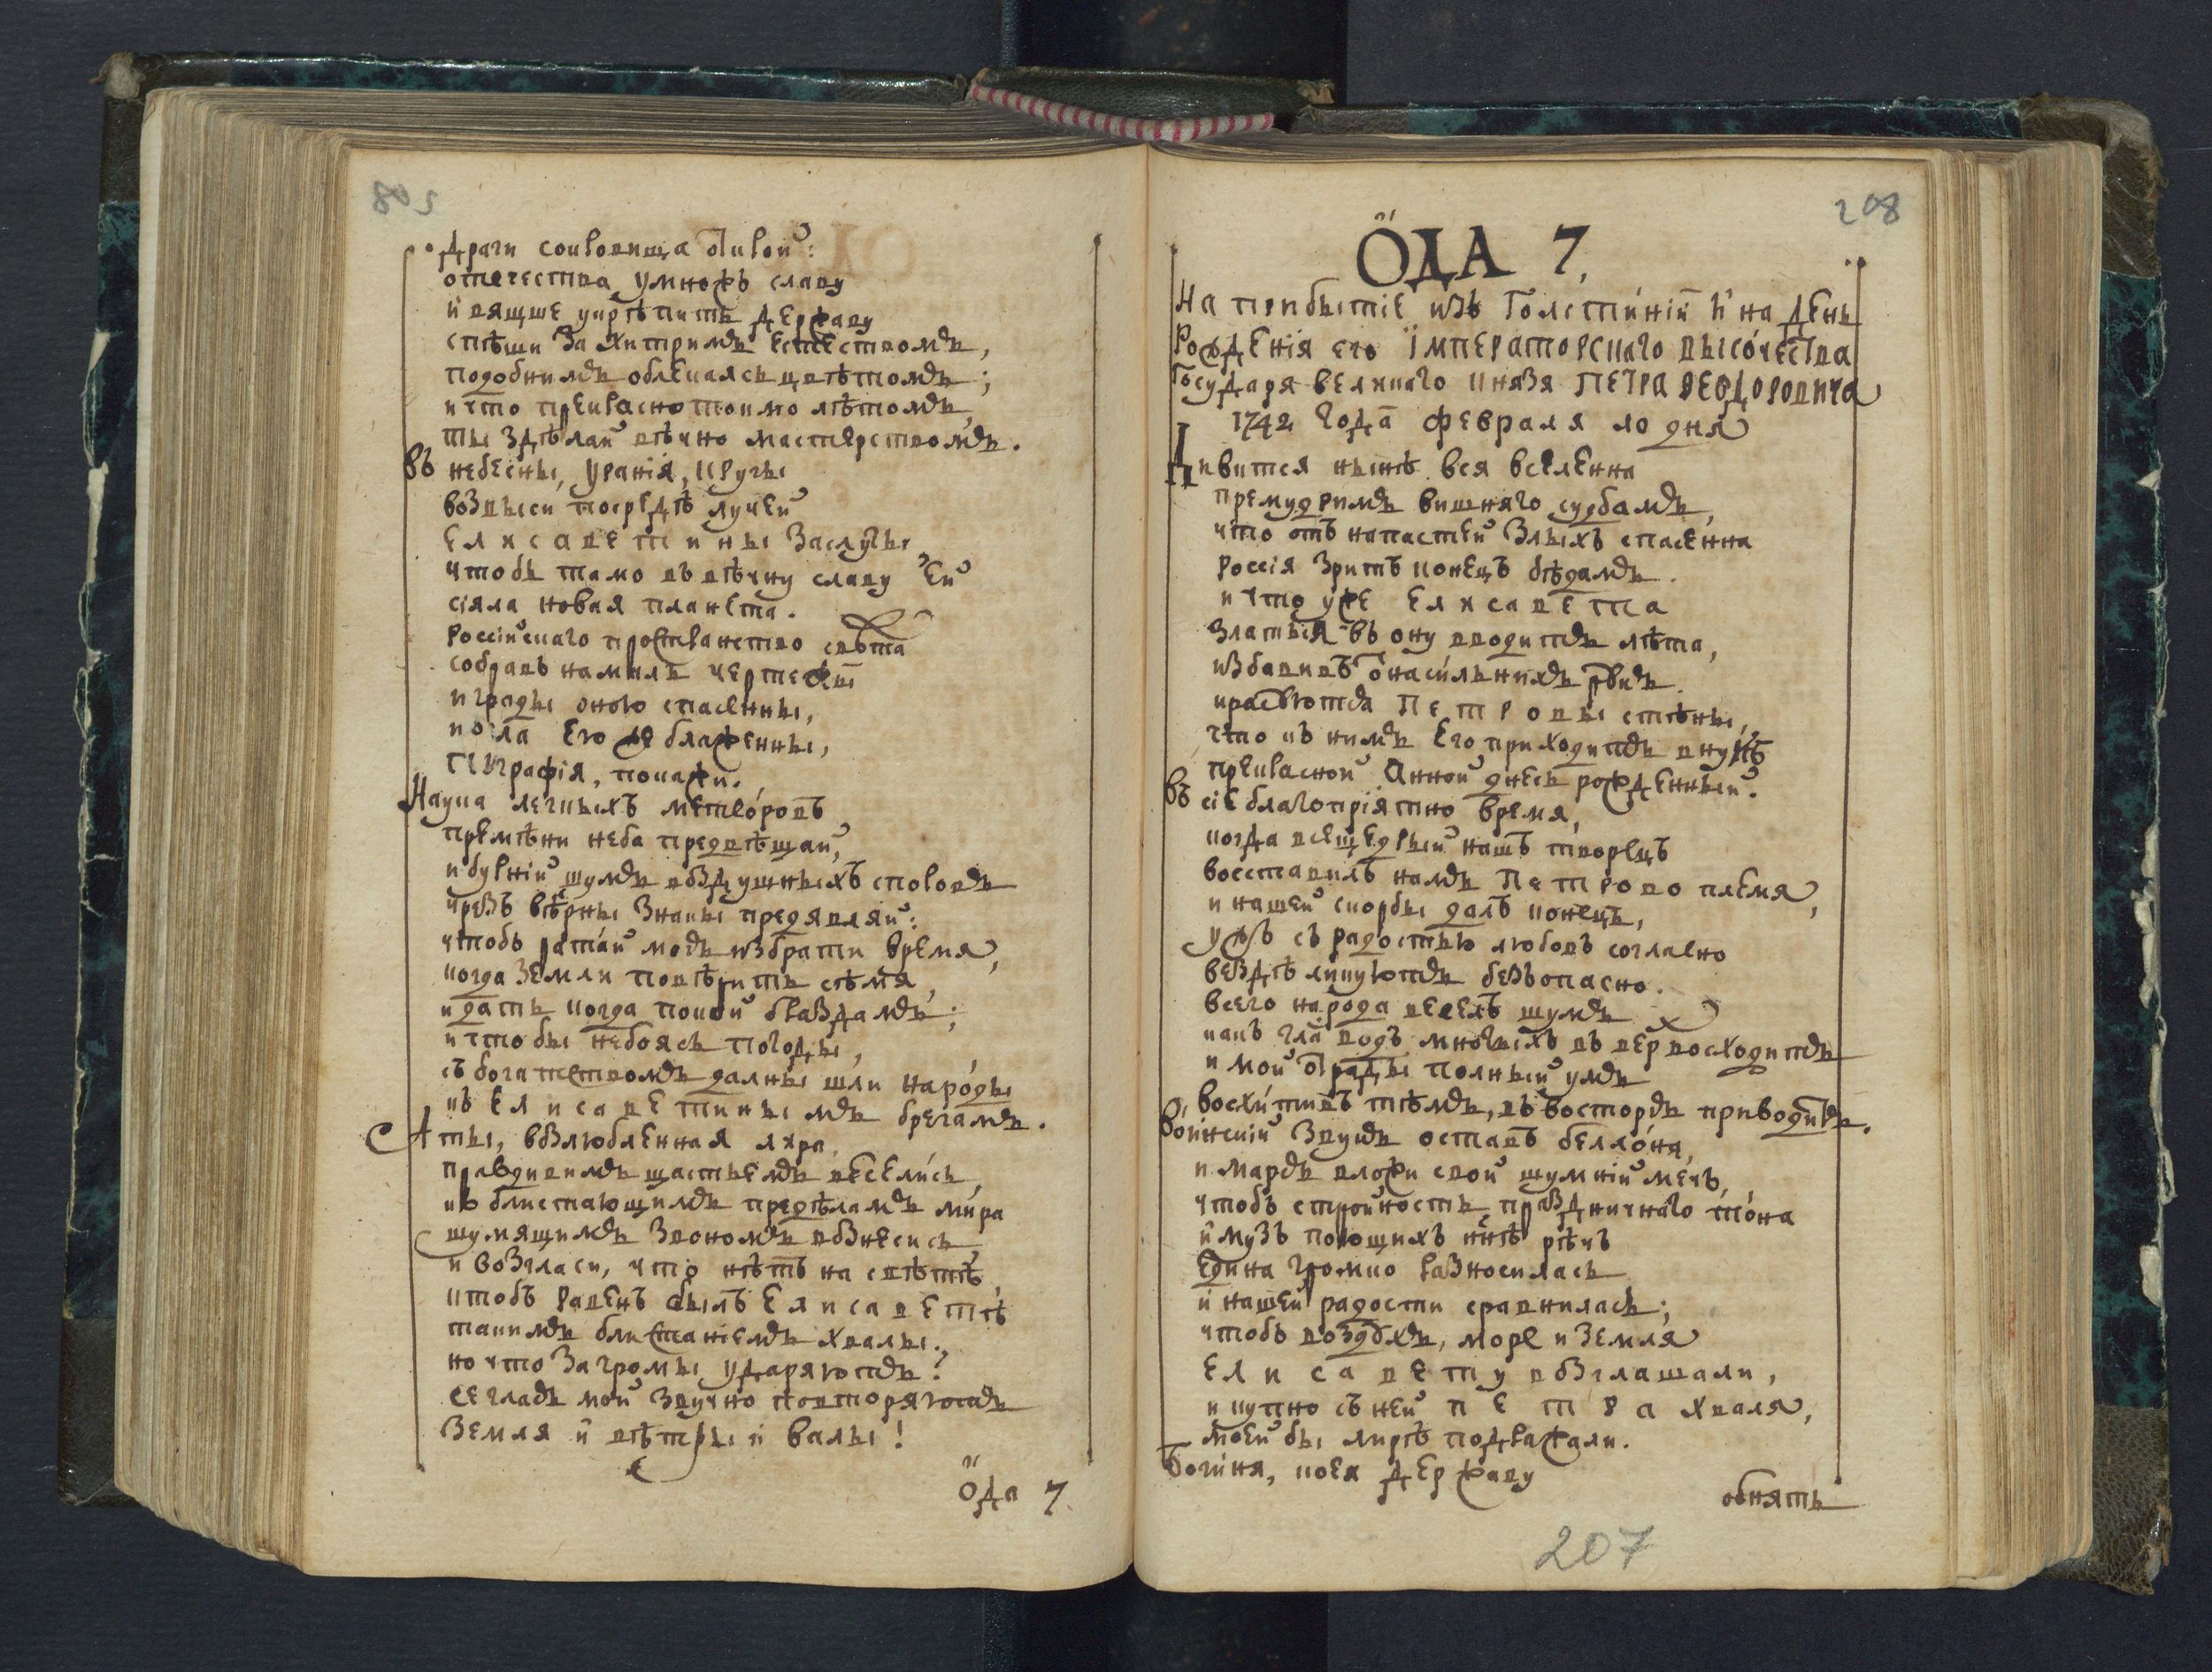 208
драги сокровища ѿкрой:
отечества умножъ славу
и вящше укрѣпить державу
спѣши за хитримъ естествомъ,
подобнимъ облекаясь цвѣтомъ;
и что прекрасно токмо лѣтомъ,
ты здѣлай вѣчно мастерствомъ.
Въ небесны, уранія, круги
возвыси посредѣ лучей
елисаветины заслуги
чтобъ тамо въ вѣчну славу ей
сіяла новая планета.
россійскаго пространство свѣта
собравъ на малы чертежы
и грады оною спасенны,
и села ею же блаженны,
геѡграфія, покажи.
Наука легкыхъ метеоровъ
премѣни неба предвѣщай,
и бурній шумъ воздушныхъ споровъ
чрезъ вѣрны знаки предявляй:
чтобъ ратай могъ избрати время,
когда земли повѣрить сѣмя,
и дать когда покой браздамъ;
и чтобы небоясь погоды,
съ богатствомъ далны шли народы
къ елисаветинымъ брегамъ.
А ты, возлюбленная лира,
правдивимъ щастьемъ веселись,
къ блистающимъ предѣламъ мира
шумящимъ звономъ вознесись
и возгласи, что нѣтъ на свѣтѣ,
ктобъ равенъ былъ елисаветѣ
такимъ блистаніемъ хвалы.
но что за громы ударяютъ?
се гласъ мой звучно повторяютъ
земля и вѣтры и валы!
ѻда 7.
208
ѺДА 7.
На прибытіе изъ Голстиніи и на день
Рожденія его Императорскаго высочества
Государя великаго князя ПЕТРА ѲЕОДОРОВИЧА
1742 года февраля 10 дня
Дивится нынѣ вся вселенна
премудримъ вишняго судбамъ,
что отъ напастей злыхъ спасенна
россія зритъ конецъ бѣдамъ.
и что уже елисавета
златыя въ ону вводитъ лѣта,
избавивъ ѿ насильнихъ рукъ.
красуются Петровы стѣны,
что къ нимъ его приходитъ внукъ
прекрасной Анной днесь рожденный.
Въ сіе благопріятно время,
когда всещедрый нашъ творецъ
восставилъ намъ Петрово племя,
и нашей скорбы далъ конецъ,
ужъ съ радостью любовъ согласно
вездѣ ликуютъ безъопасно.
всего народа веселъ шумъ
какъ гла водъ многыхъ въ верьвосходитъ
и мой ѿрады полный умъ
восхитивъ тѣмъ, въ восторгъ приводитъ.
Воинскій звукъ оставъ беллона,
и марсъ вложи свой шумній мечъ,
чтобъ стройность праздничнаго тона
и музъ поющихъ ннѣ рѣчь
едина громко разносилась
и нашей радости сравнилась;
чтобъ воздухъ, море и земля
елисавету возглашали,
и купно съ ней петра хваля,
моей бы лирѣ подражали.
Богиня, коея державу
обнять
207